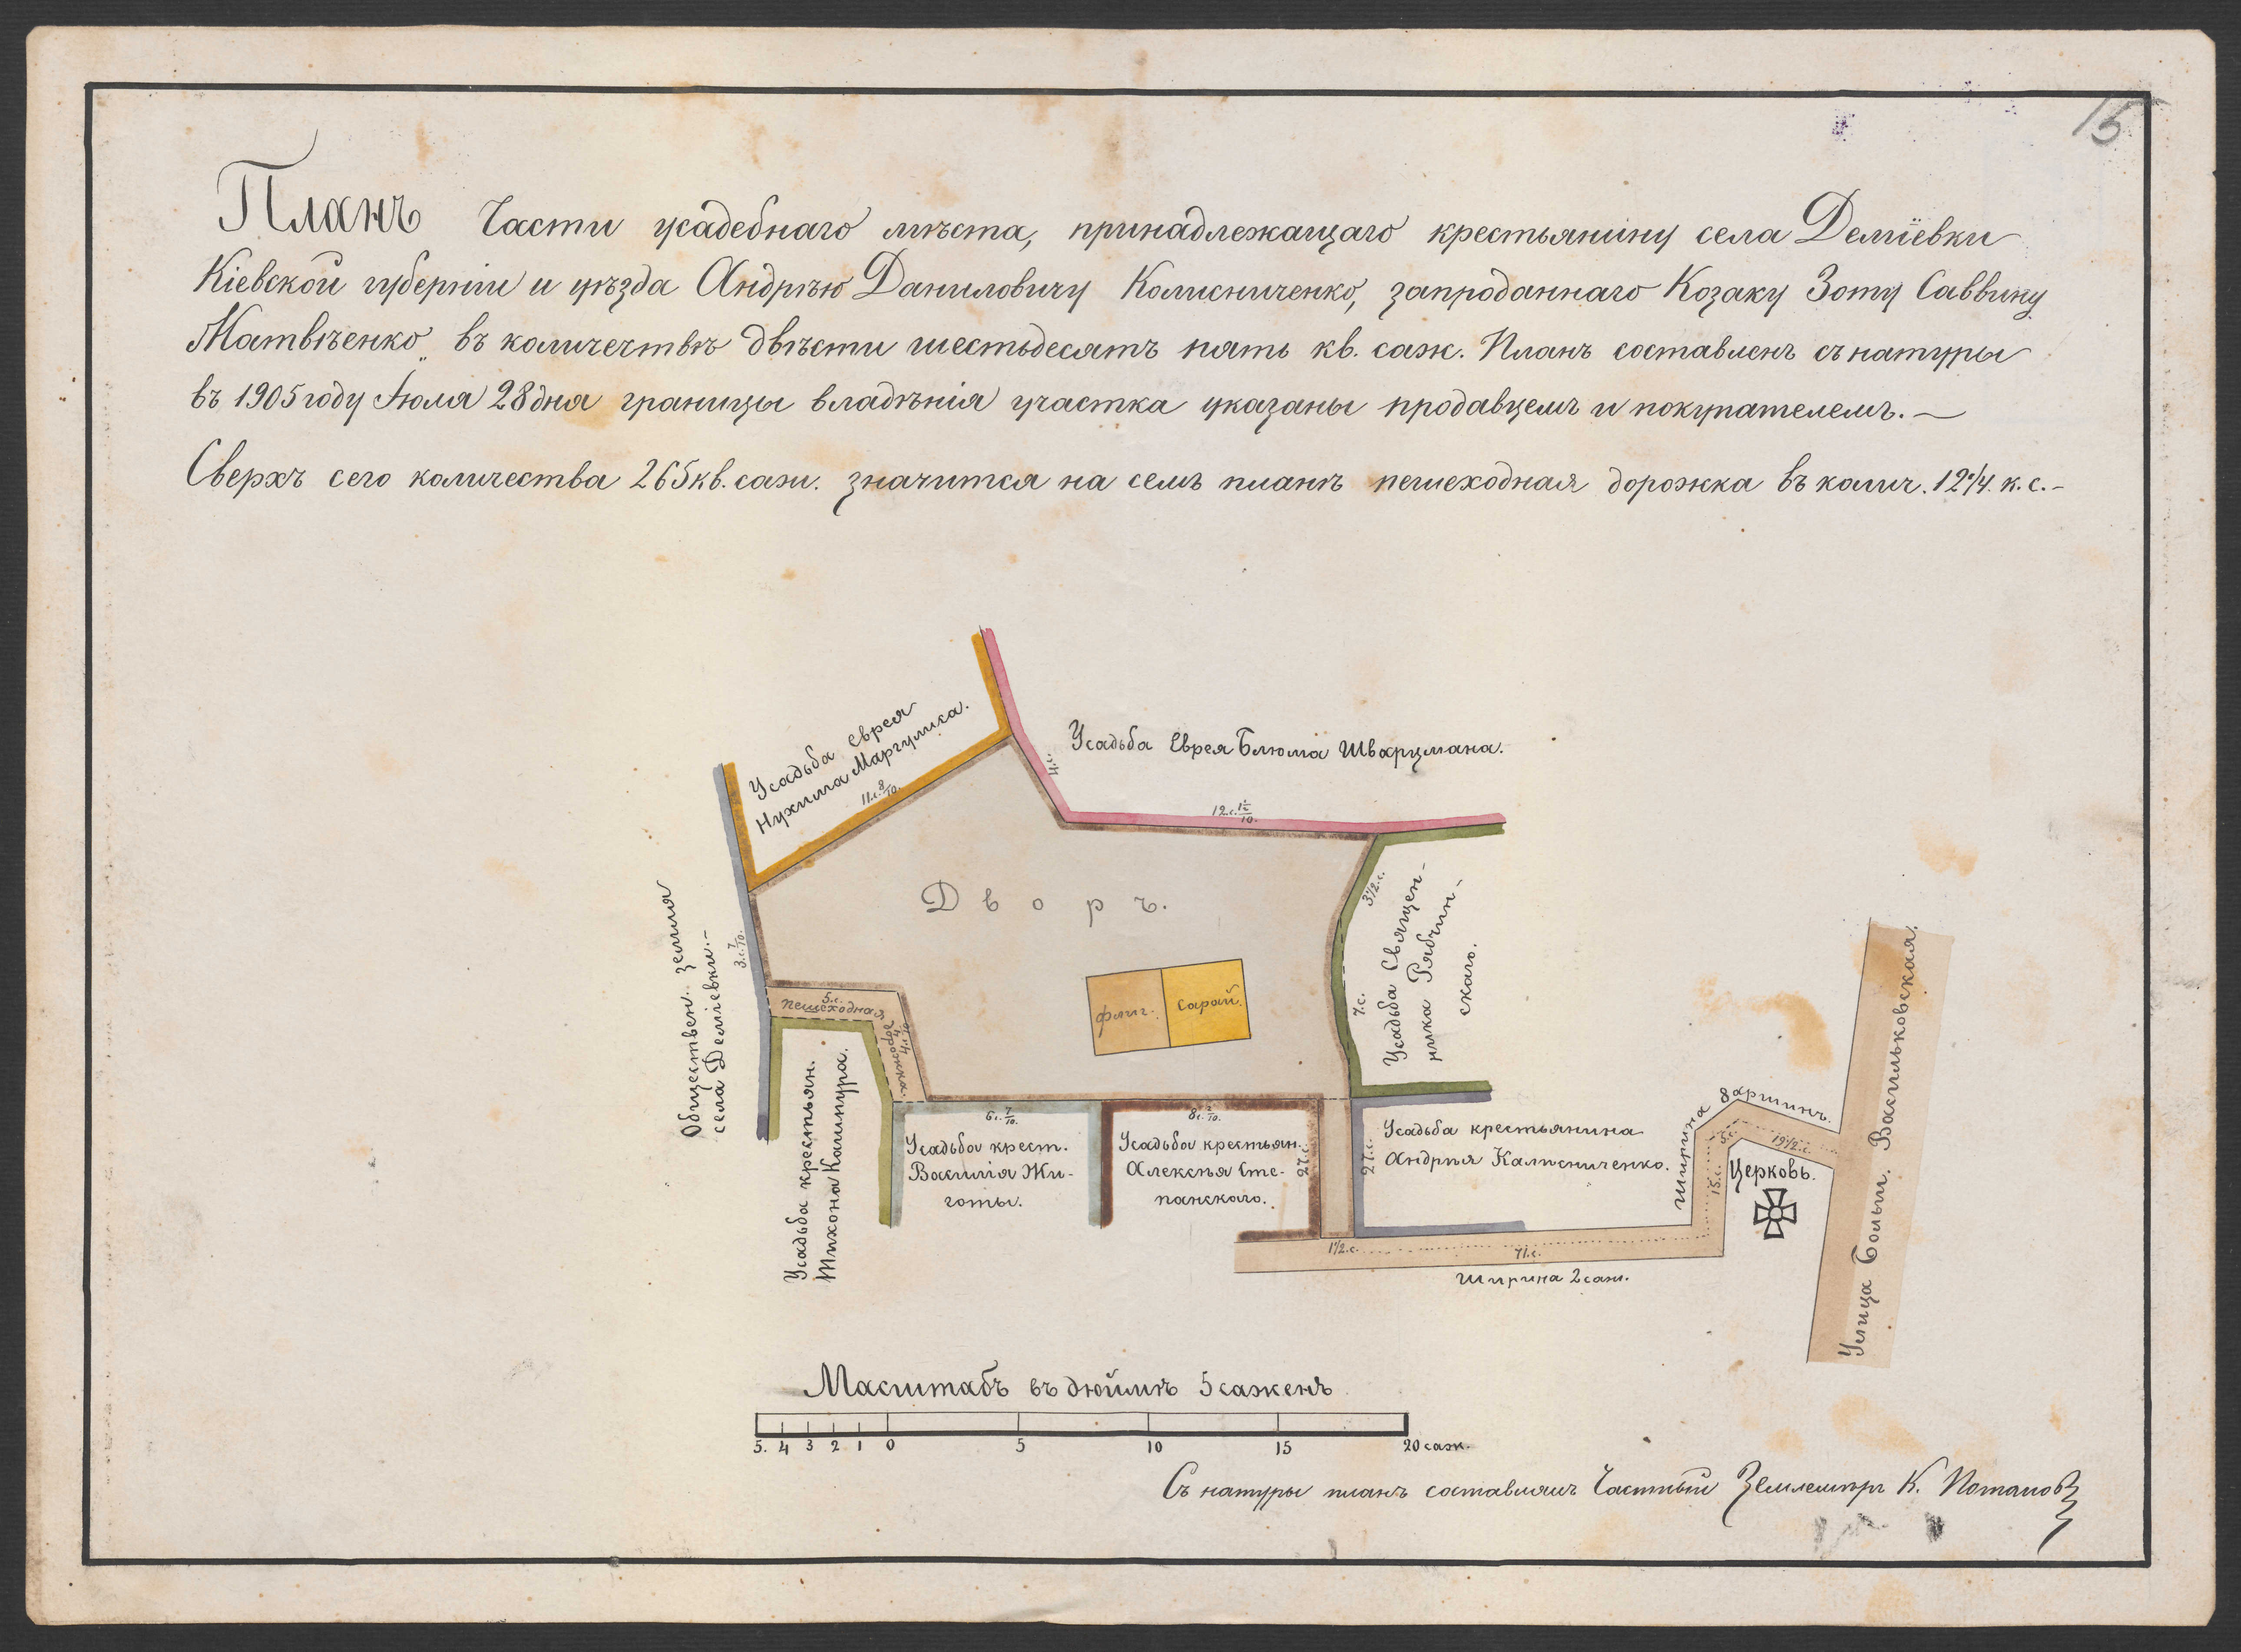 15
Планъ Части усадебнаго мѣста, принадлежащаго крестьянину села Деміевки
Кіевской губерніи и уѣзда Андрѣю Даниловичу Колисниченко, запроданнаго Козаку Зоту Саввину
Матвѣенко въ количествѣ двѣсти шестьдесятъ пять кв. саж. Планъ составленъ съ натуры
въ 1905 году Іюля 28 дня границы владѣнія участка указаны продавцемъ и покупателемъ. —
Сверхъ сего количества 265 кв. саж. значится на семъ планѣ пешеходная дорожка въ колич. 12¼ к. с. –
Усадьба еврея
Нухима Маргулиса.
11.с. 8/10.
Усадьба Еврея Блюма Шварцмана.
4.с.
12.с. 1½/10.
Дворъ.
Обществен. земля
села Деміевки. –
3.с. 7/10.
5.с.
пешеходная
дорожка.
4.с. 4/10
флиг.
Сарай.
3½.с.
7.с.
Усадьба Священ-
ника Рябчин-
скаго.
Усадьба крестьян.
Тихона Кашпура.
6с. 7/10.
Усадьба крест.
Василія Жи-
готы.
8с. 2/10.
Усадьба крестьян.
Алексѣя Сте-
панскаго.
27.с.
27.с.
Усадьба крестьянина
Андрѣя Калисниченко.
ширина 8 аршинъ.
5с.
19½.с.
15.с.
Церковь.
Улица Больш. Васильковская.
1½.с.
71.с.
ширина 2 саж.
Масштабъ въ дюймѣ 5 саженъ
5. 4 3 2 1 0 5 10 15 20 саж.
Съ натуры планъ составлялъ Частный Землемѣръ К. Потаповъ